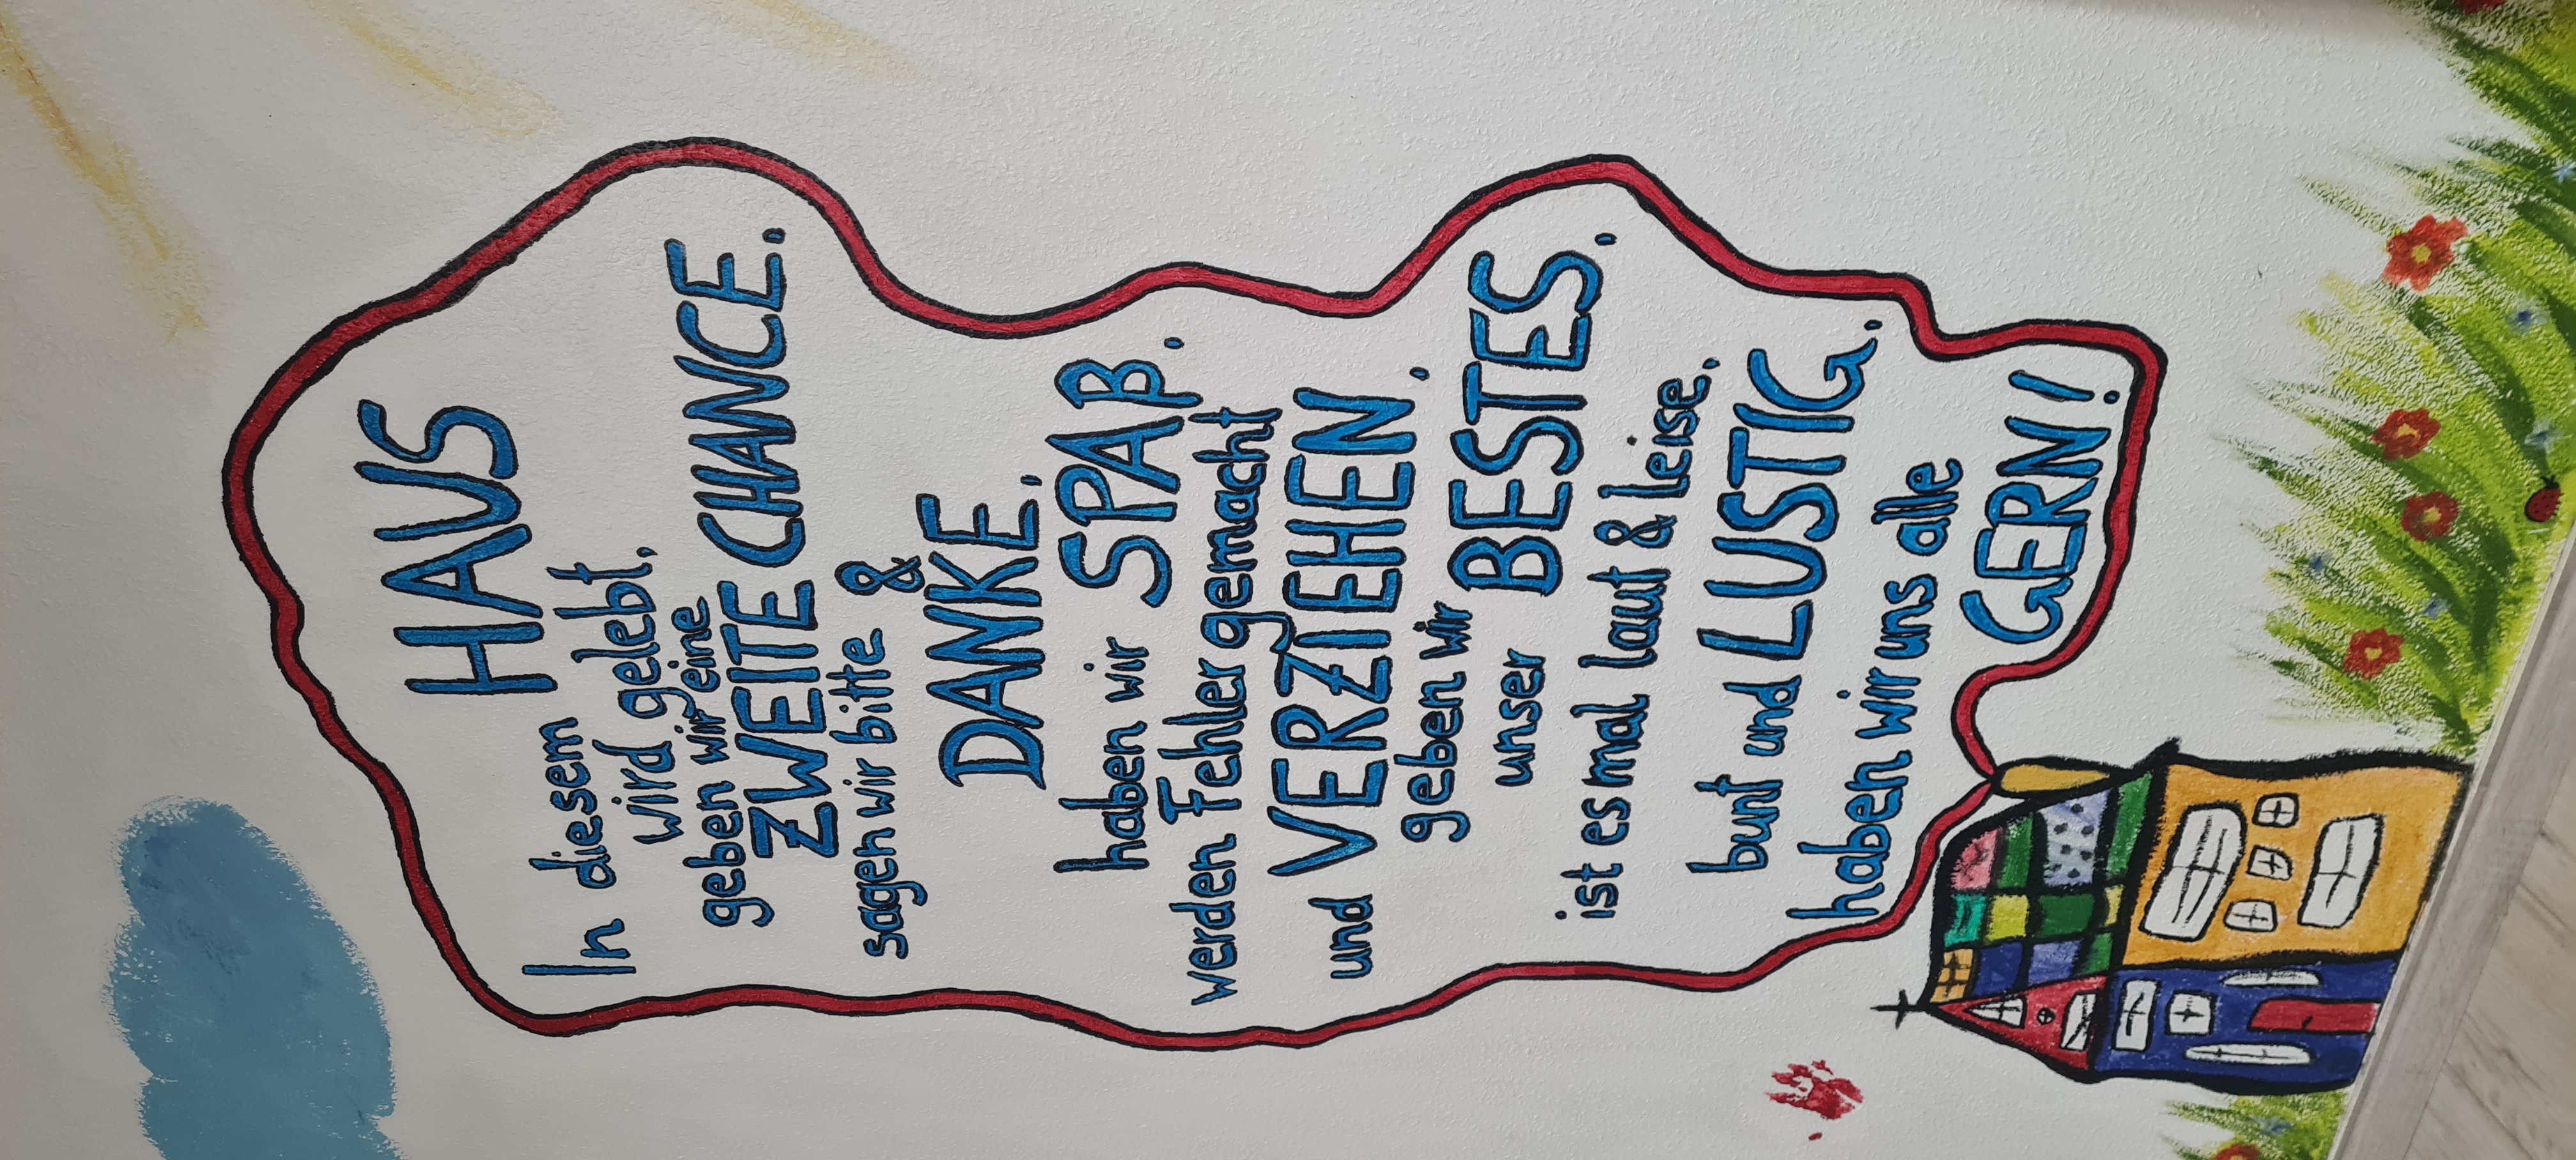 In diesem HAUS
wird gelebt,
geben wir eine
ZWEITE CHANCE.
sagen wir bitte &
DANKE,
haben wir SPAß.
werden Fehler gemacht
und VERZIEHEN,
geben wir
unser BESTES.
ist es mal laut & leise,
bunt und LUSTIG.
haben wir uns alle
GERN!